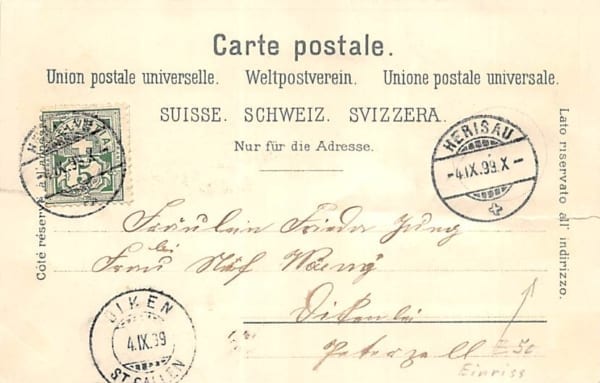 Carte postale.
Union postale universelle. Weltpostverein. Unione postale universale.
SUISSE. SCHWEIZ. SVIZZERA.
Nur für die Adresse.
Côté réservé
Lato riservato all' indirizzo.
HELVETIA
HERISAU
-4.IX.99.X-
Fräulein Frieda Jung
bei
Frau Näf
Diken bei
Peterzell
DIKEN
4.IX.99
ST. GALLEN
50
Einriss